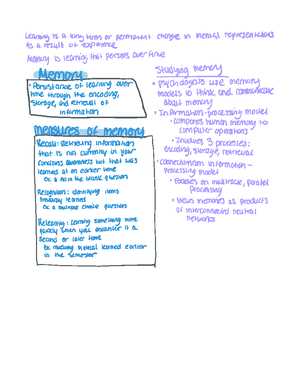 Learning is a long term or permanent change in mental representations
as a result of experience
Memory is learning that persists over time
Memory
• Persistence of learning over
time through the encoding,
storage, and retrieval of
information
measures of memory
Recall: retrieving information
that is not currently in your
conscious awareness but that was
learned at an earlier time
Ex: a fill in the blank question
Recognition: identifying items
previously learned
Ex: a multiple choice question
Relearning: learning something more
quickly when you encounter it a
second or later time
Ex: studying material learned earlier
in the semester
Studying memory
• psychologists use memory
models to think and communicate
about memory
• Information-processing model
• compares human memory to
computer operations
• Involves 3 processes:
encoding, storage, retrieval
• connectionism information-
processing model
• Focuses on multitrack, parallel
processing
• views memories as products
of interconnected neural
networks